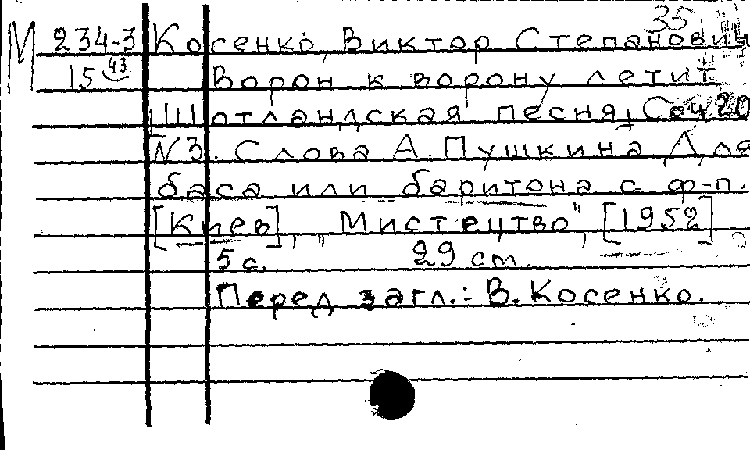 35
М 234-3 Косенко, Виктор Степанович
15 43 Ворон к ворону летит
Шотландская песня, Соч 20
N3. Слова А. Пушкина Для
баса или баритона с ф-п.
[Киев], "Мистецтво", [1952]
5 с. 29 см.
Перед загл.: В. Косенко.